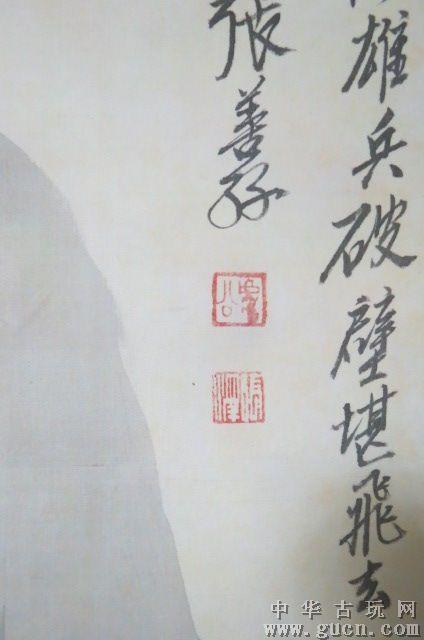 雄兵破壁堪飛去
張善孖
張澤
中华古玩网
www.gucn.com